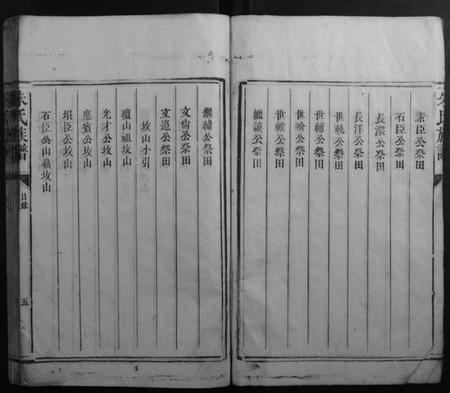 朱氏族譜
素臣公祭田
石臣公祭田
長濂公祭田
長洋公祭田
世執公祭田
世輔公祭田
世蛟公祭田
世懷公祭田
繼謨公祭田
繼緒公祭田
文尚公祭田
文造公祭田
坟山小引
瓊山祖坟山
光才公坟山
應賓公坟山
項臣公坟山
石臣公山嶺坟山
朱氏族譜
目錄
五